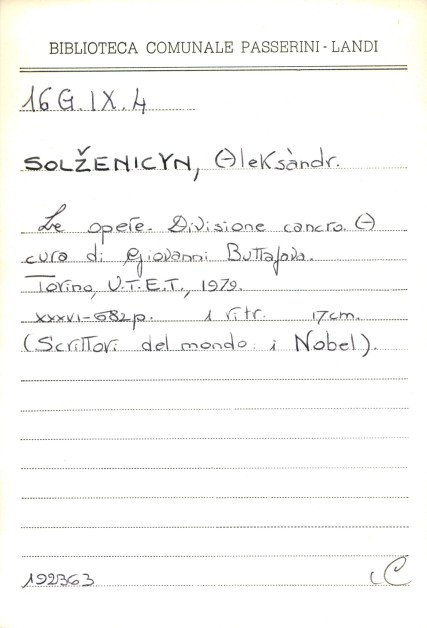 BIBLIOTECA COMUNALE PASSERINI-LANDI
16 G.IX.4
SOLŽENICYN, Aleksàndr.
Le opere. Divisione cancro. A
cura di Giovanni Buttafava.
Torino, U.T.E.T., 1979.
XXXVI-682 p. 1 ritr. 17 cm.
(Scrittori del mondo: i Nobel).
192363 C